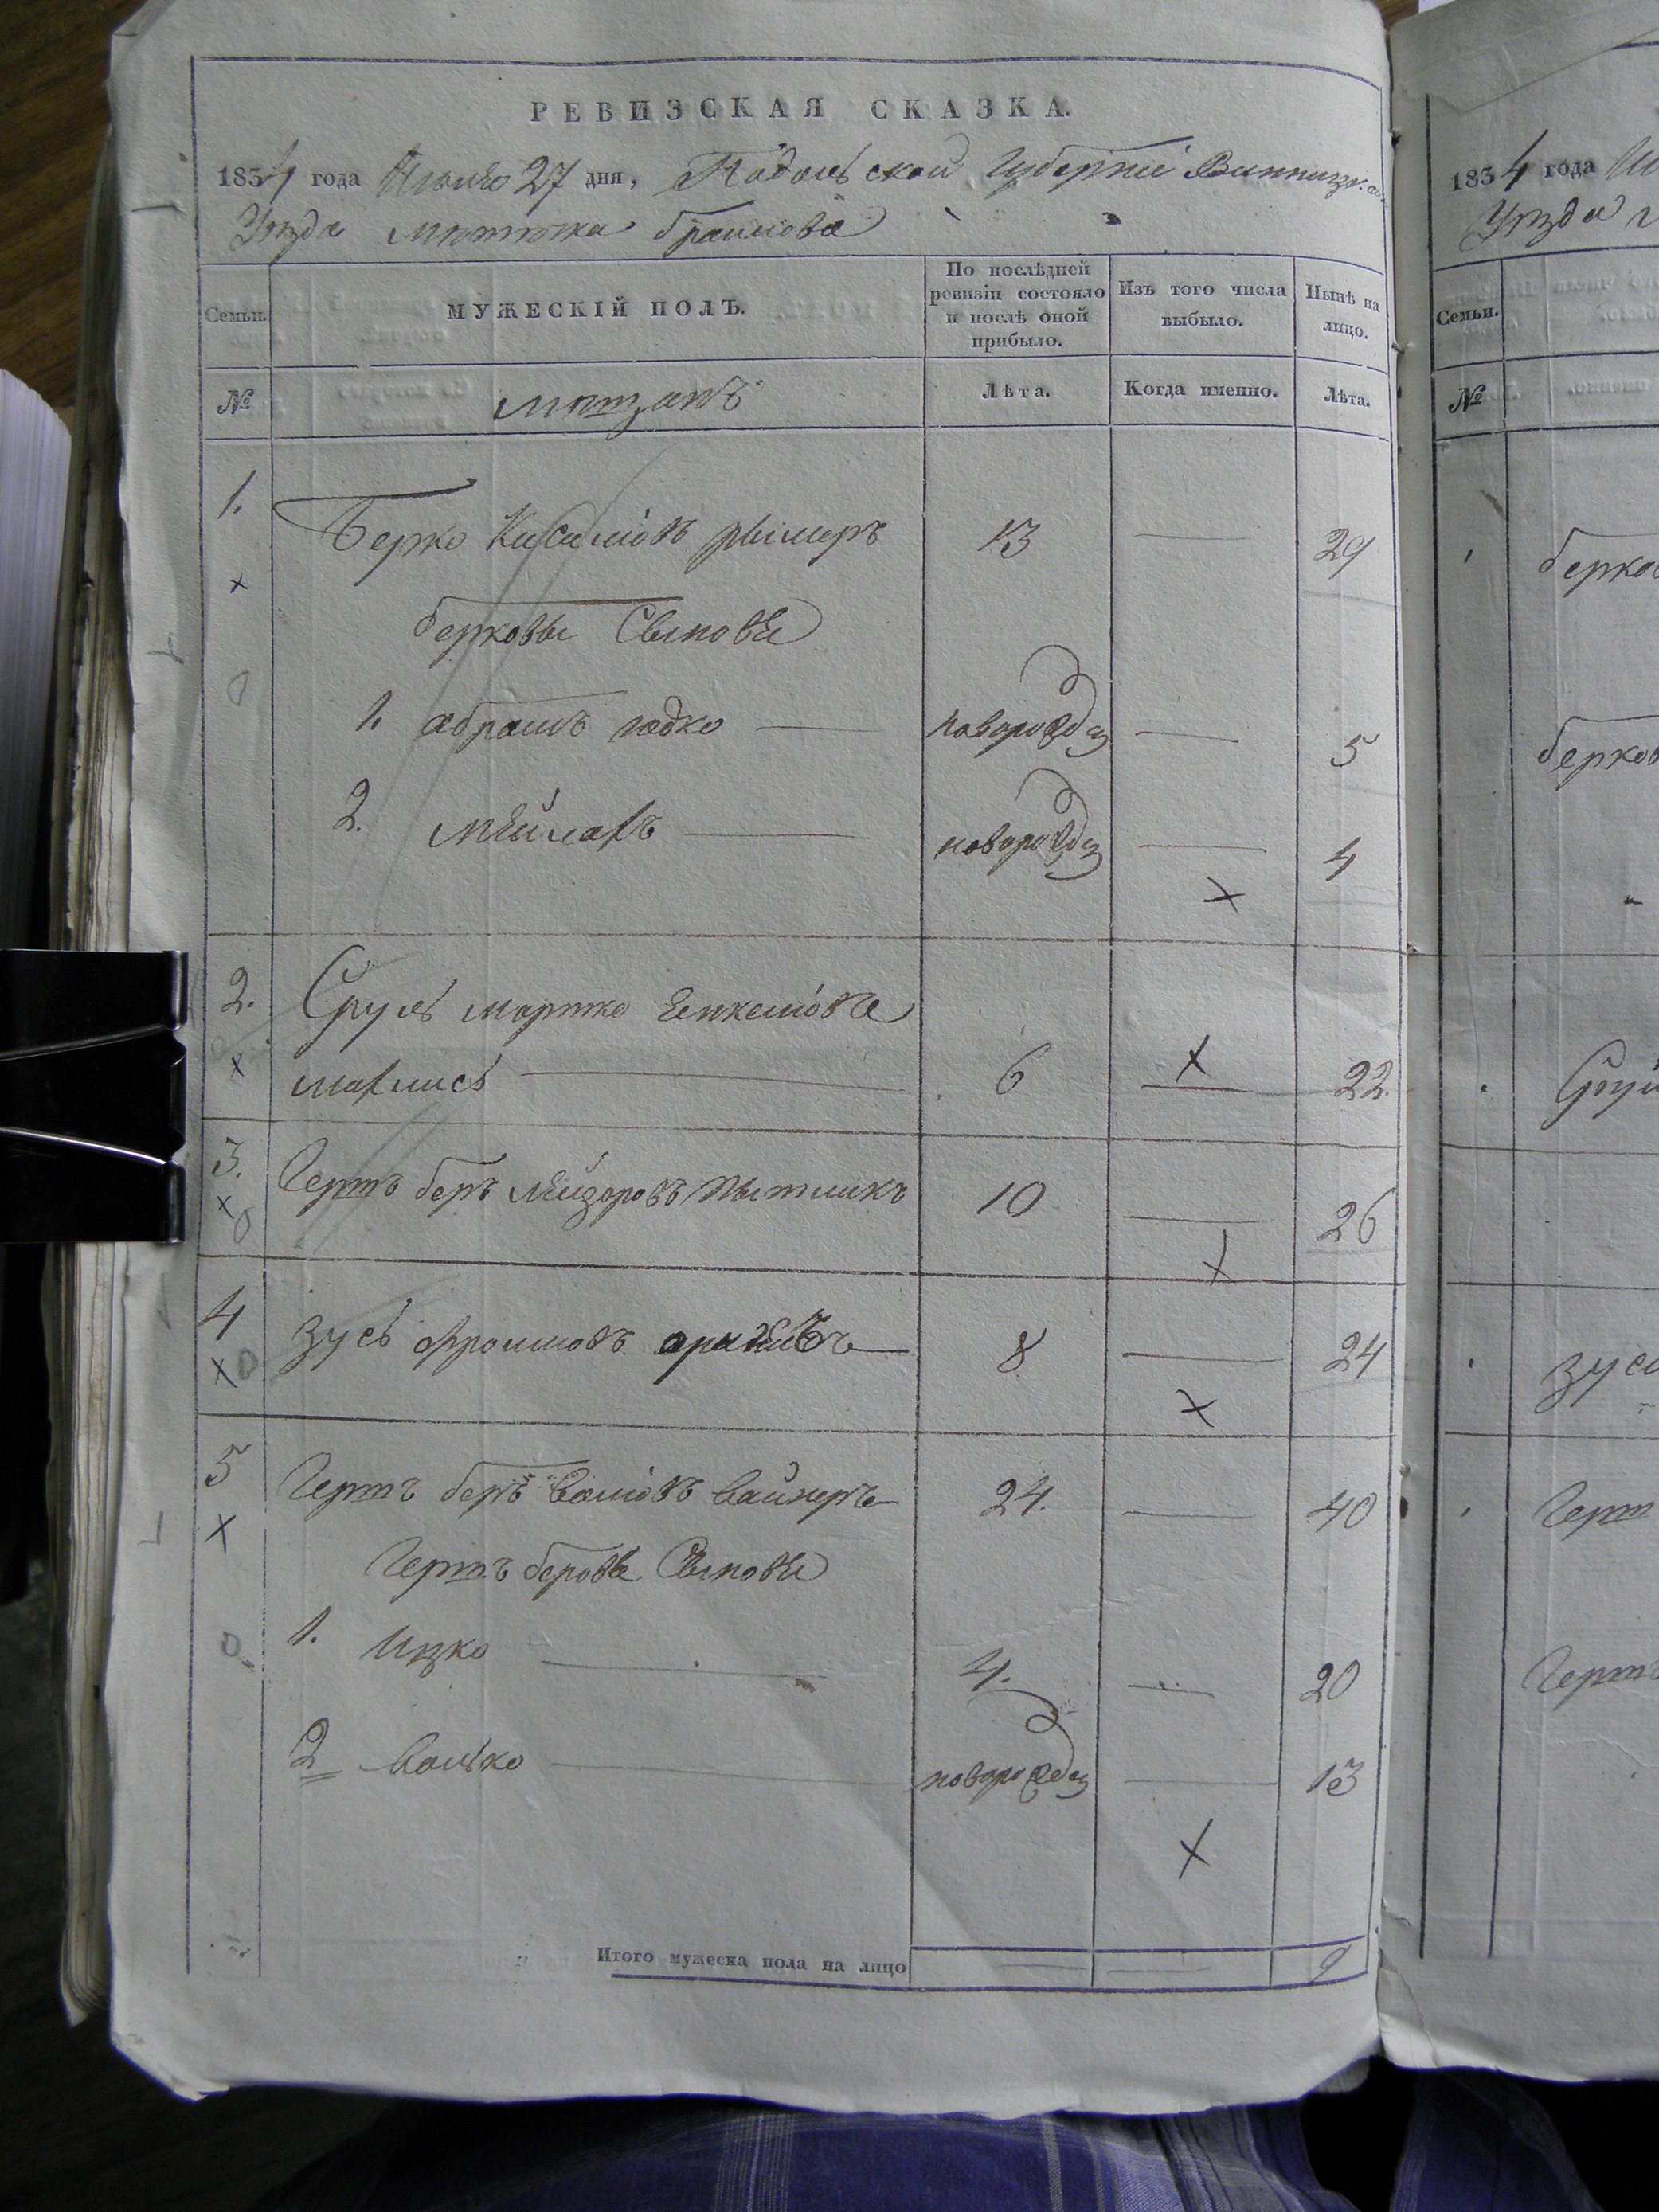 РЕВИЗСКАЯ СКАЗКА.
1834 года 27 дня, Подольской Губерніи Винницкаго
Уѣзда мѣстечка Браилова
Семьи.
МУЖЕСКІЙ ПОЛЪ.
По послѣдней ревизіи состояло и послѣ оной прибыло.
Изъ того числа выбыло.
Нынѣ на лицо.
№
мѣщанъ
Лѣта.
Когда именно.
Лѣта.
1.
Берко рымеръ 13 29
Берковы Сыновья
1. абрамъ юдко новорожд 5
2. мейлахъ новорожд 4
2. Сруль мортко
6 22.
3. Герть беръ Лейзоровъ 10 26
4 Зусь Фроимовъ 8 24
5 Герть беръ вайнеръ 24. 40
Герть беровы Сыновья
1. Ицко 4. 20
2 волько новорожд 13
Итого мужеска пола на лицо 9
1834 года
Уѣзда
Семьи.
№
берков
берков
Срул
зусь
Герт
Герть